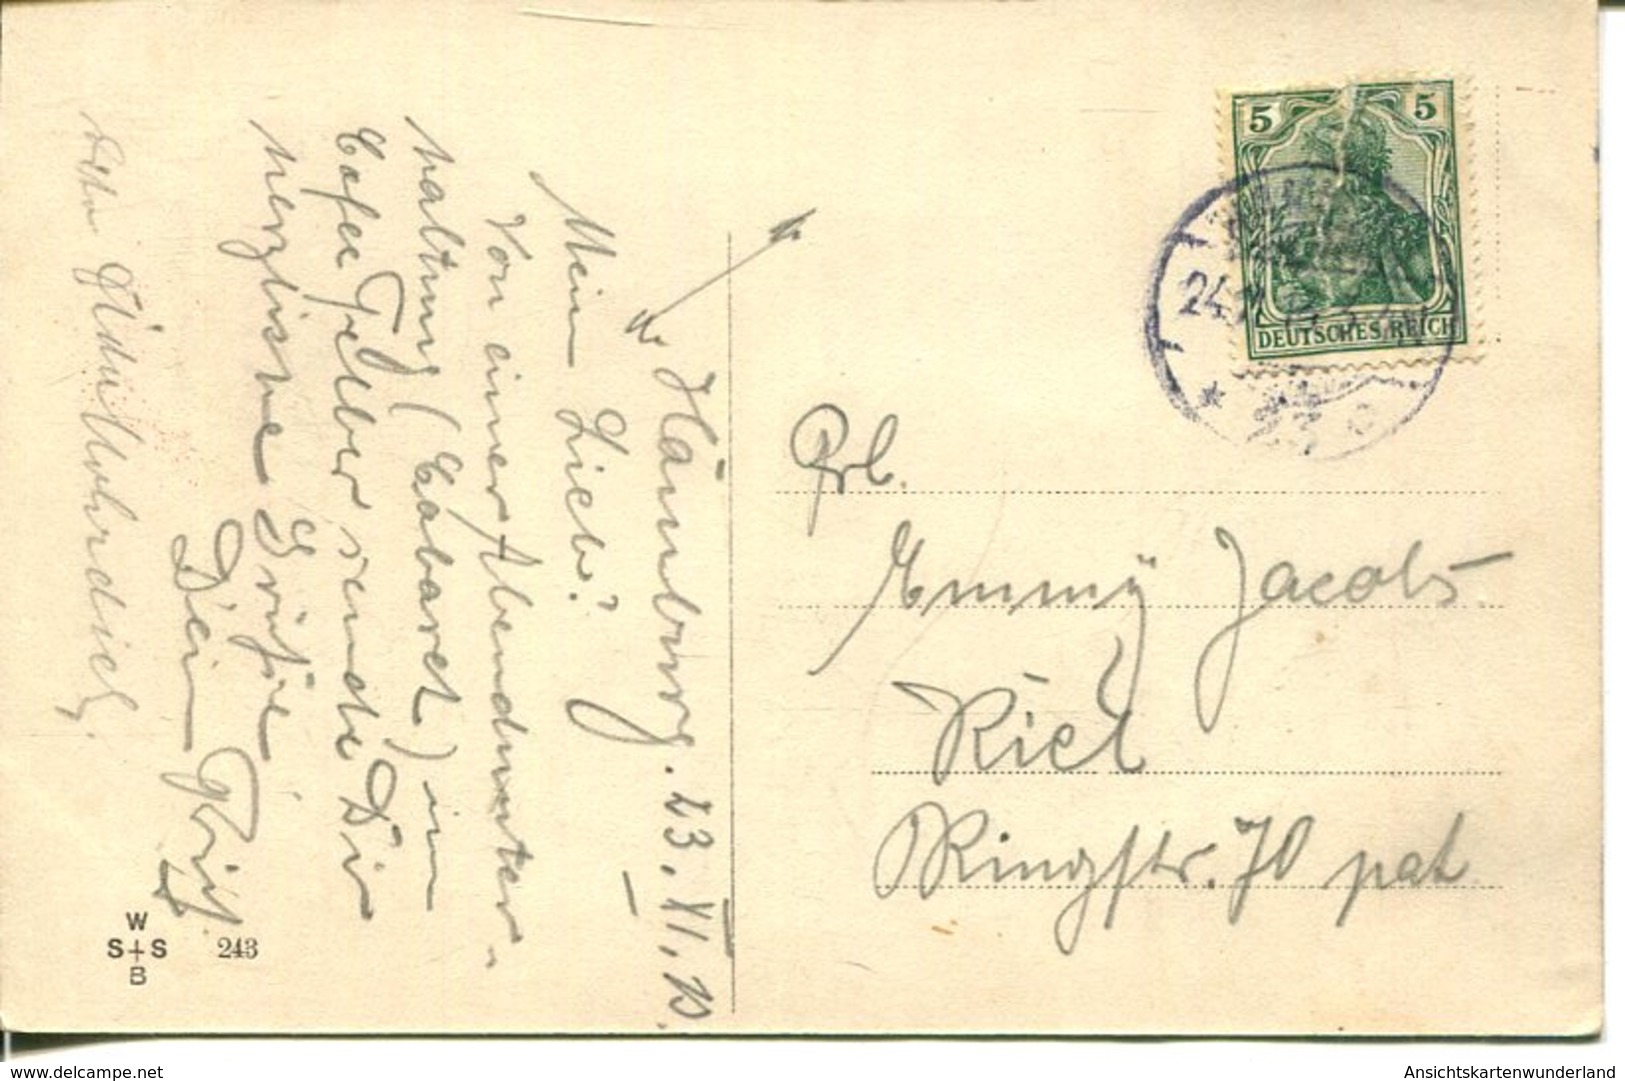 Hamburg. 23. XI. 10.
Mein Lieb!
Von einer Abendunter-
haltung (Cabaret) im
Cafee Felber sende Dir
herzlische Grüße
Dein Fritz
W
S+S
B
243
5 5
DEUTSCHES REICH
24.11.
Frl.
Emmy Jacobs
Kiel
Ringstr. 70 pat
delcampe.net
Ansichtskartenwunderland